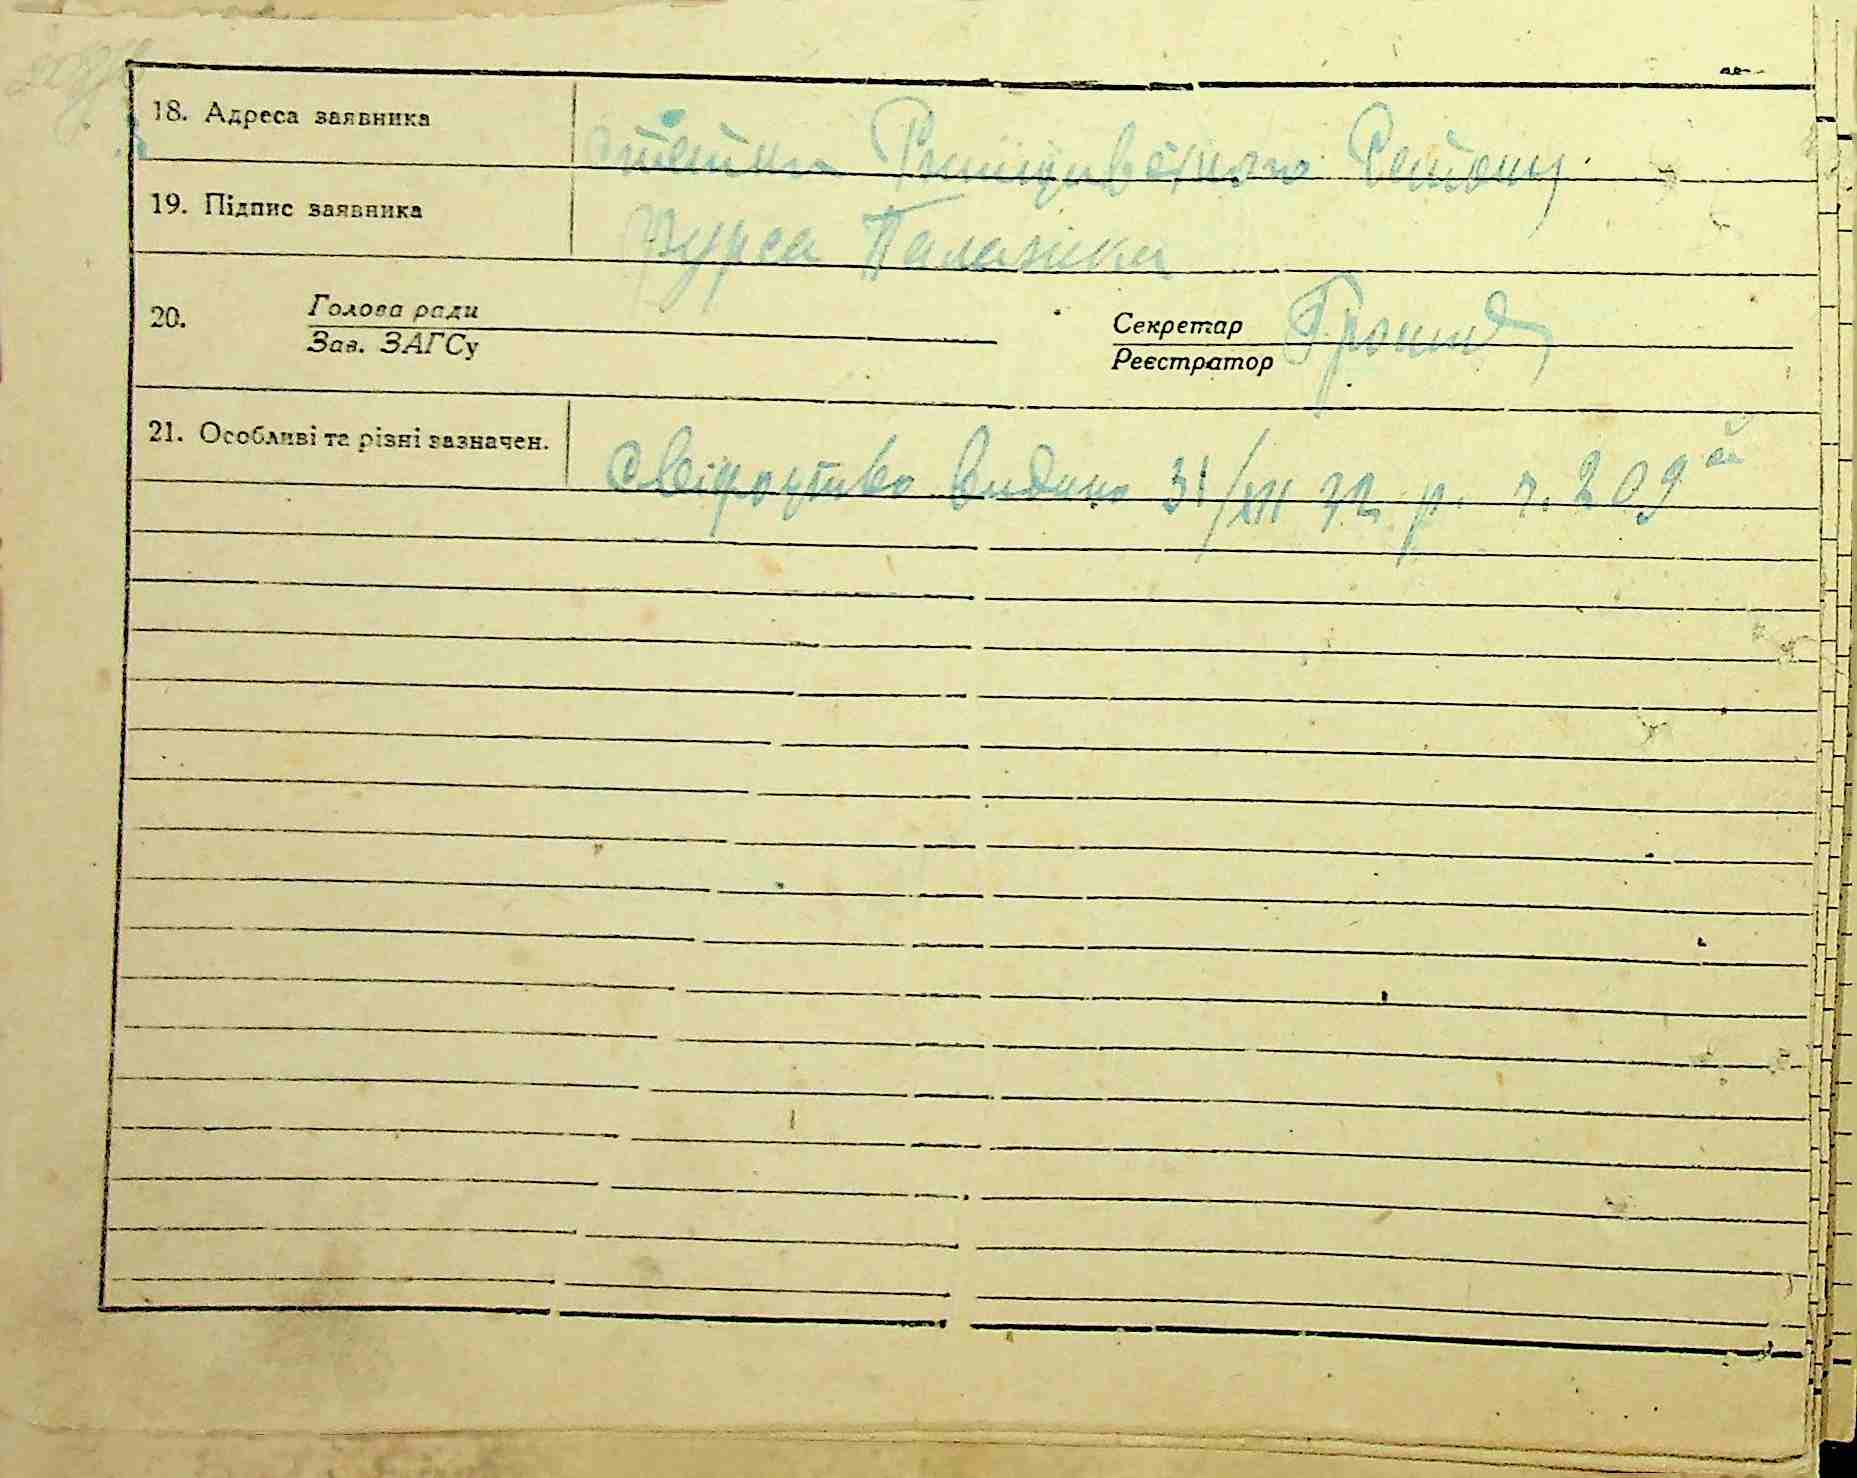 18. Адреса заявника Ржищівського Району
19. Підпис заявника Бурса Палажка
20. Голова ради Секретар
Зав. ЗАГСу Реєстратор
21. Особливі та різні зазначен. Свідоцтво видано 31/XII 32 р. ч. 209